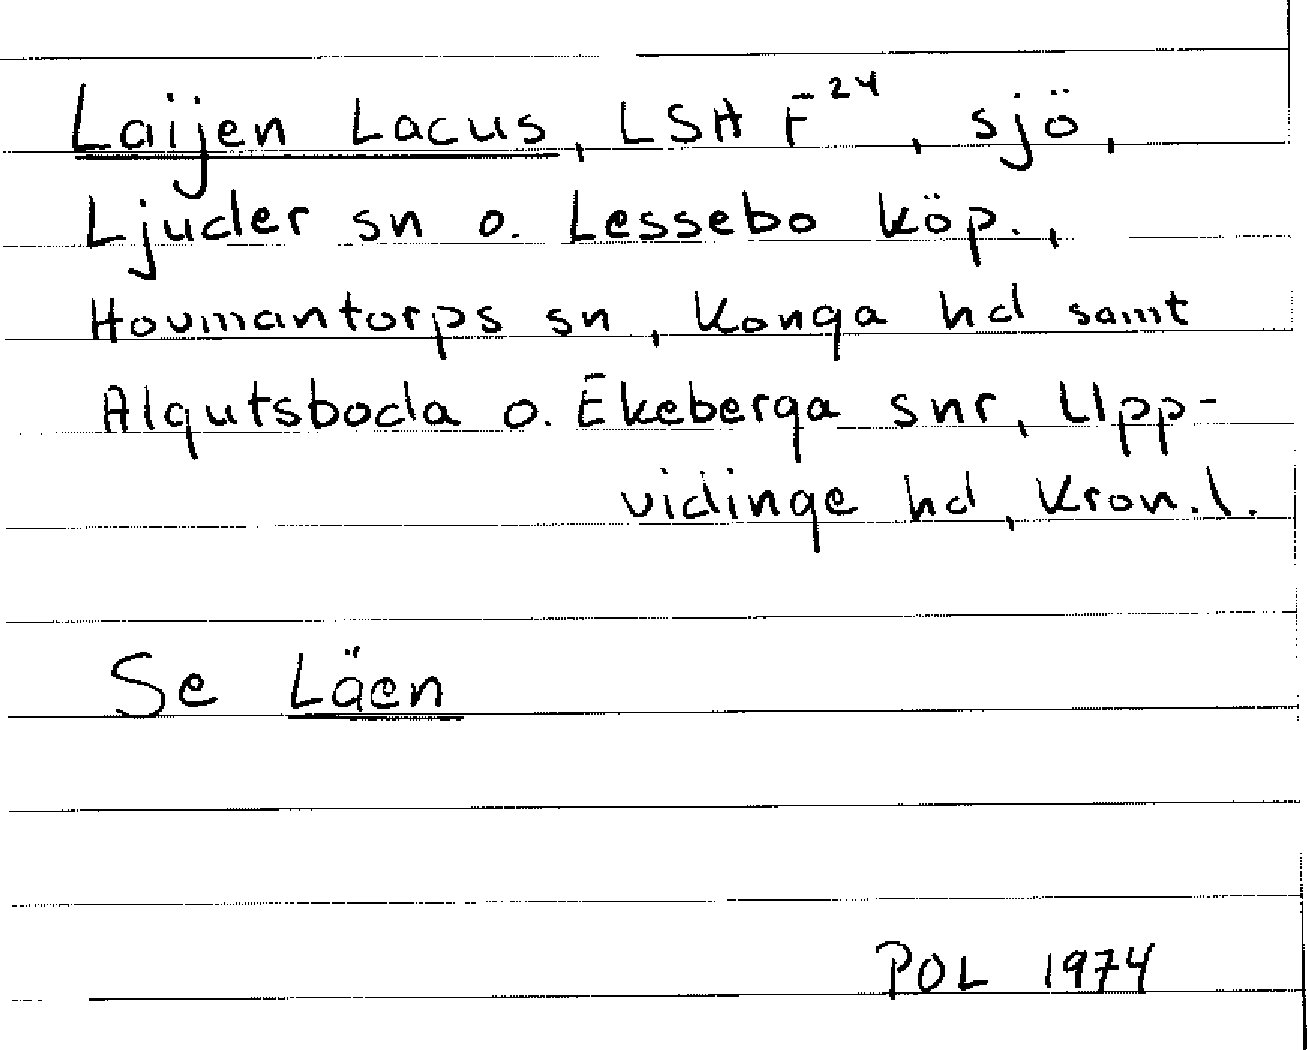 Laijen Lacus, LSH F²⁴, sjö,
Ljuder sn o. Lessebo köp.,
Hovmantorps sn, Konga hd samt
Algutsboda o. Ekeberga snr, Upp-
vidinge hd, Kron.l.
Se Läen
POL 1974